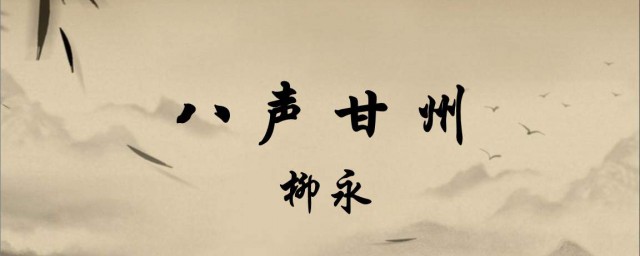 八声甘州
柳永